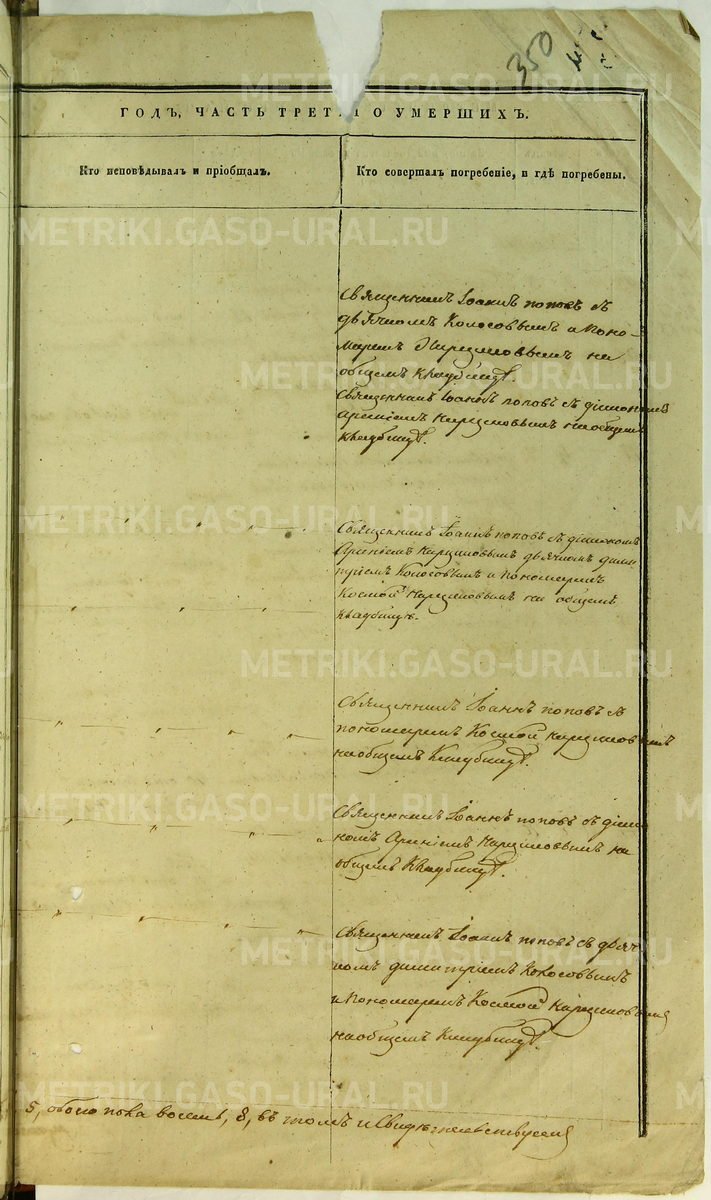 350
METRIKI.GASO-URAL.RU
ГОДЪ, ЧАСТЬ ТРЕТ О УМЕРШИХЪ.
Кто исповѣдывалъ и пріобщалъ.
Кто совершалъ погребеніе, и гдѣ погребены.
Священникъ Іоаннъ Поповъ съ
дьячкомъ Колосовымъ и Поно-
маремъ на
общемъ кладбищѣ.
Священникъ Іоаннъ Поповъ съ діакономъ
на общемъ
кладбищѣ.
Священникъ Іоаннъ Поповъ съ діакономъ
дьячкомъ Дими
тріемъ Колосовымъ и пономаремъ
Космой на общемъ
кладбищѣ.
Священникъ Іоаннъ Поповъ съ
пономаремъ Космой
на общемъ кладбищѣ.
Священникъ Іоаннъ Поповъ съ діако
номъ на
общемъ кладбищѣ.
Священникъ Іоаннъ Поповъ съ дьяч
комъ Димитріемъ Колосовымъ
и Пономаремъ Космой
на общемъ кладбищѣ.
5, обоего пола восемь, 8, въ томъ и свидѣтельствуемъ